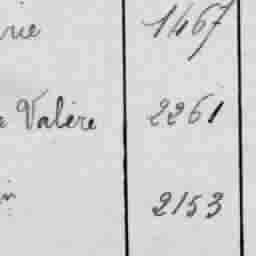 rie 1467
e Valère 2261
in 2153